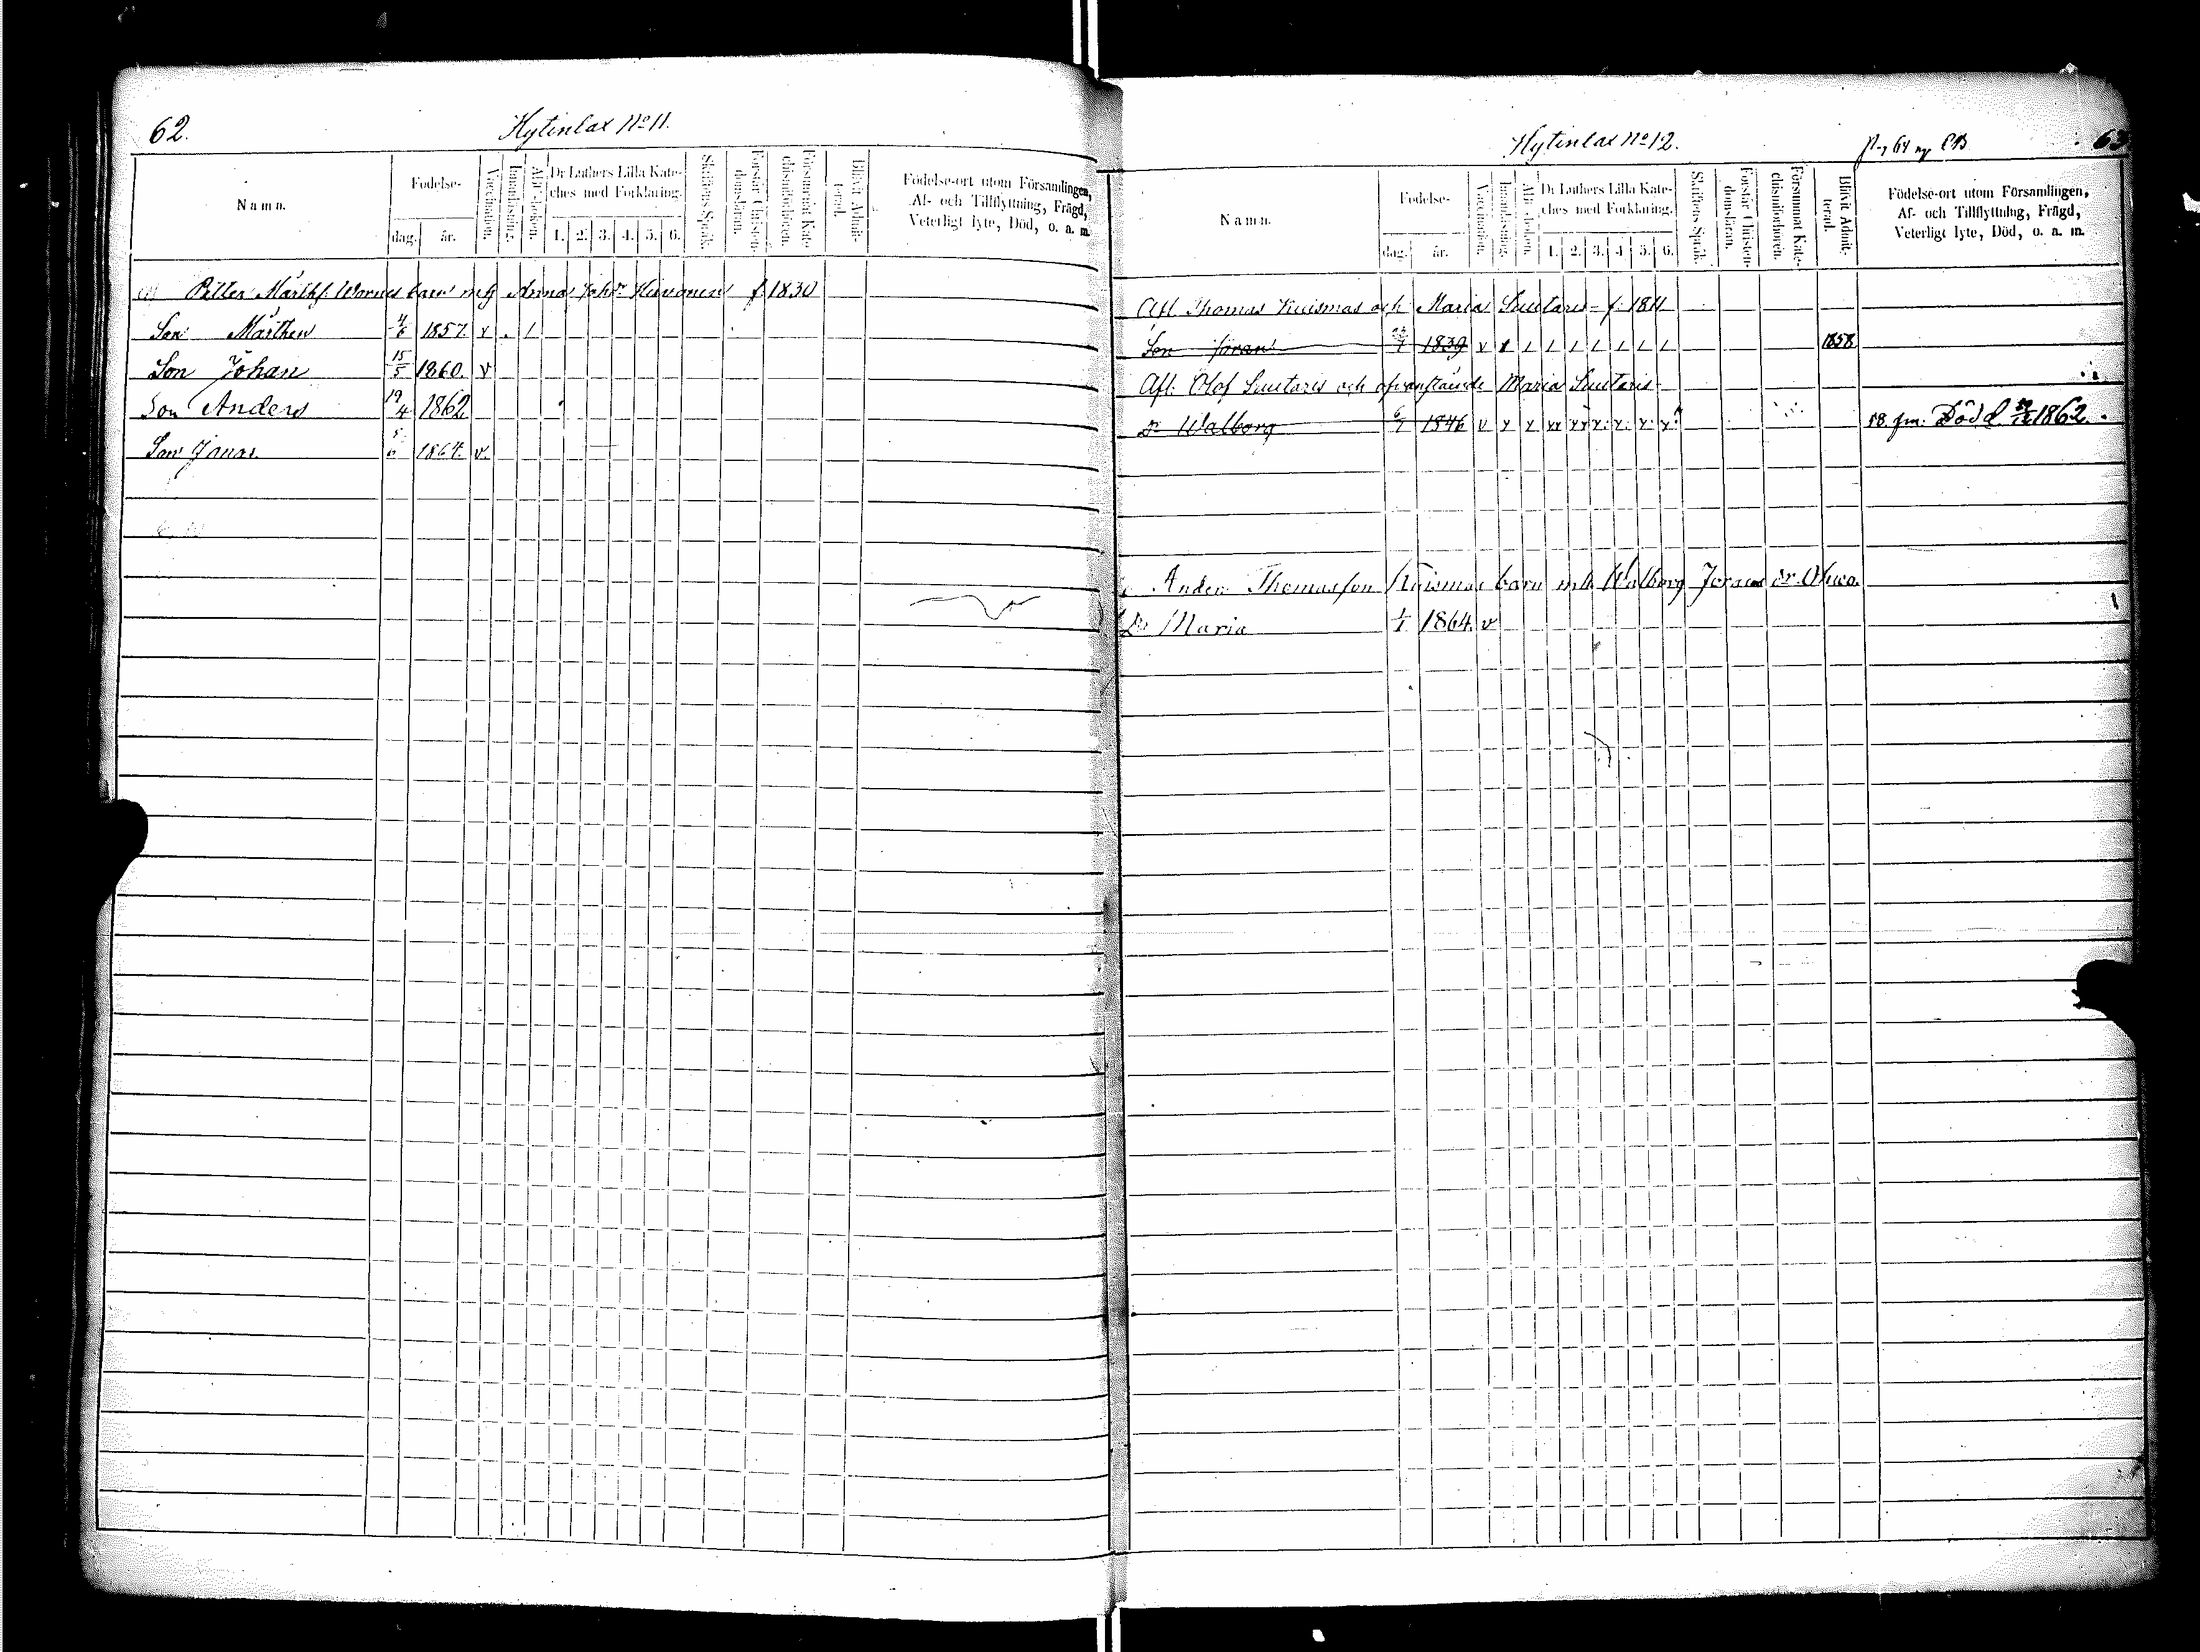 62.
Hytinlax No 11.
Namn.
Födelse-
dag. år.
Vaccination.
Innanläsning.
Dr Luthers Lilla Kate-
ches med Förklaring.
1. 2. 3. 4. 5. 6.
Skriftens Språk.
Förstår Christen-
domsläran.
Försummat Kate-
chismiförhören.
Blivit Admit-
terad.
Födelse-ort utom Församlingen,
Af- och Tillflyttning, Frägd,
Veterligt lyte, Död, o. a. m.
Petter Mårthf. barn m Anna f. 1830
Son Mårthen 4/6 1857 v
Son Johan 15/5 1860. v
Son Anders 19/4 1862
Son Jonas 5/6 1864. v.
Hytinlax No 12.
63
Namn.
Födelse-
dag. år.
Vaccination.
Innanläsning.
Dr Luthers Lilla Kate-
ches med Förklaring.
1. 2. 3. 4. 5. 6.
Skriftens Språk.
Förstår Christen-
domsläran.
Försummat Kate-
chismiförhören.
Blivit Admit-
terad.
Födelse-ort utom Församlingen,
Af- och Tillflyttning, Frägd,
Veterligt lyte, Död, o. a. m.
Afl. Thomas Kuismas och Maria Suutaris f. 1811
Son Jöran 1839 v 1858
Afl. Olof Suutaris och ofvanstående Maria Suutaris
Dr Walborg 6/7 1846 v x x Död 1862.
Anders Thomasson Kuismas barn m. Walborg
Dr Maria 1/1 1864. v